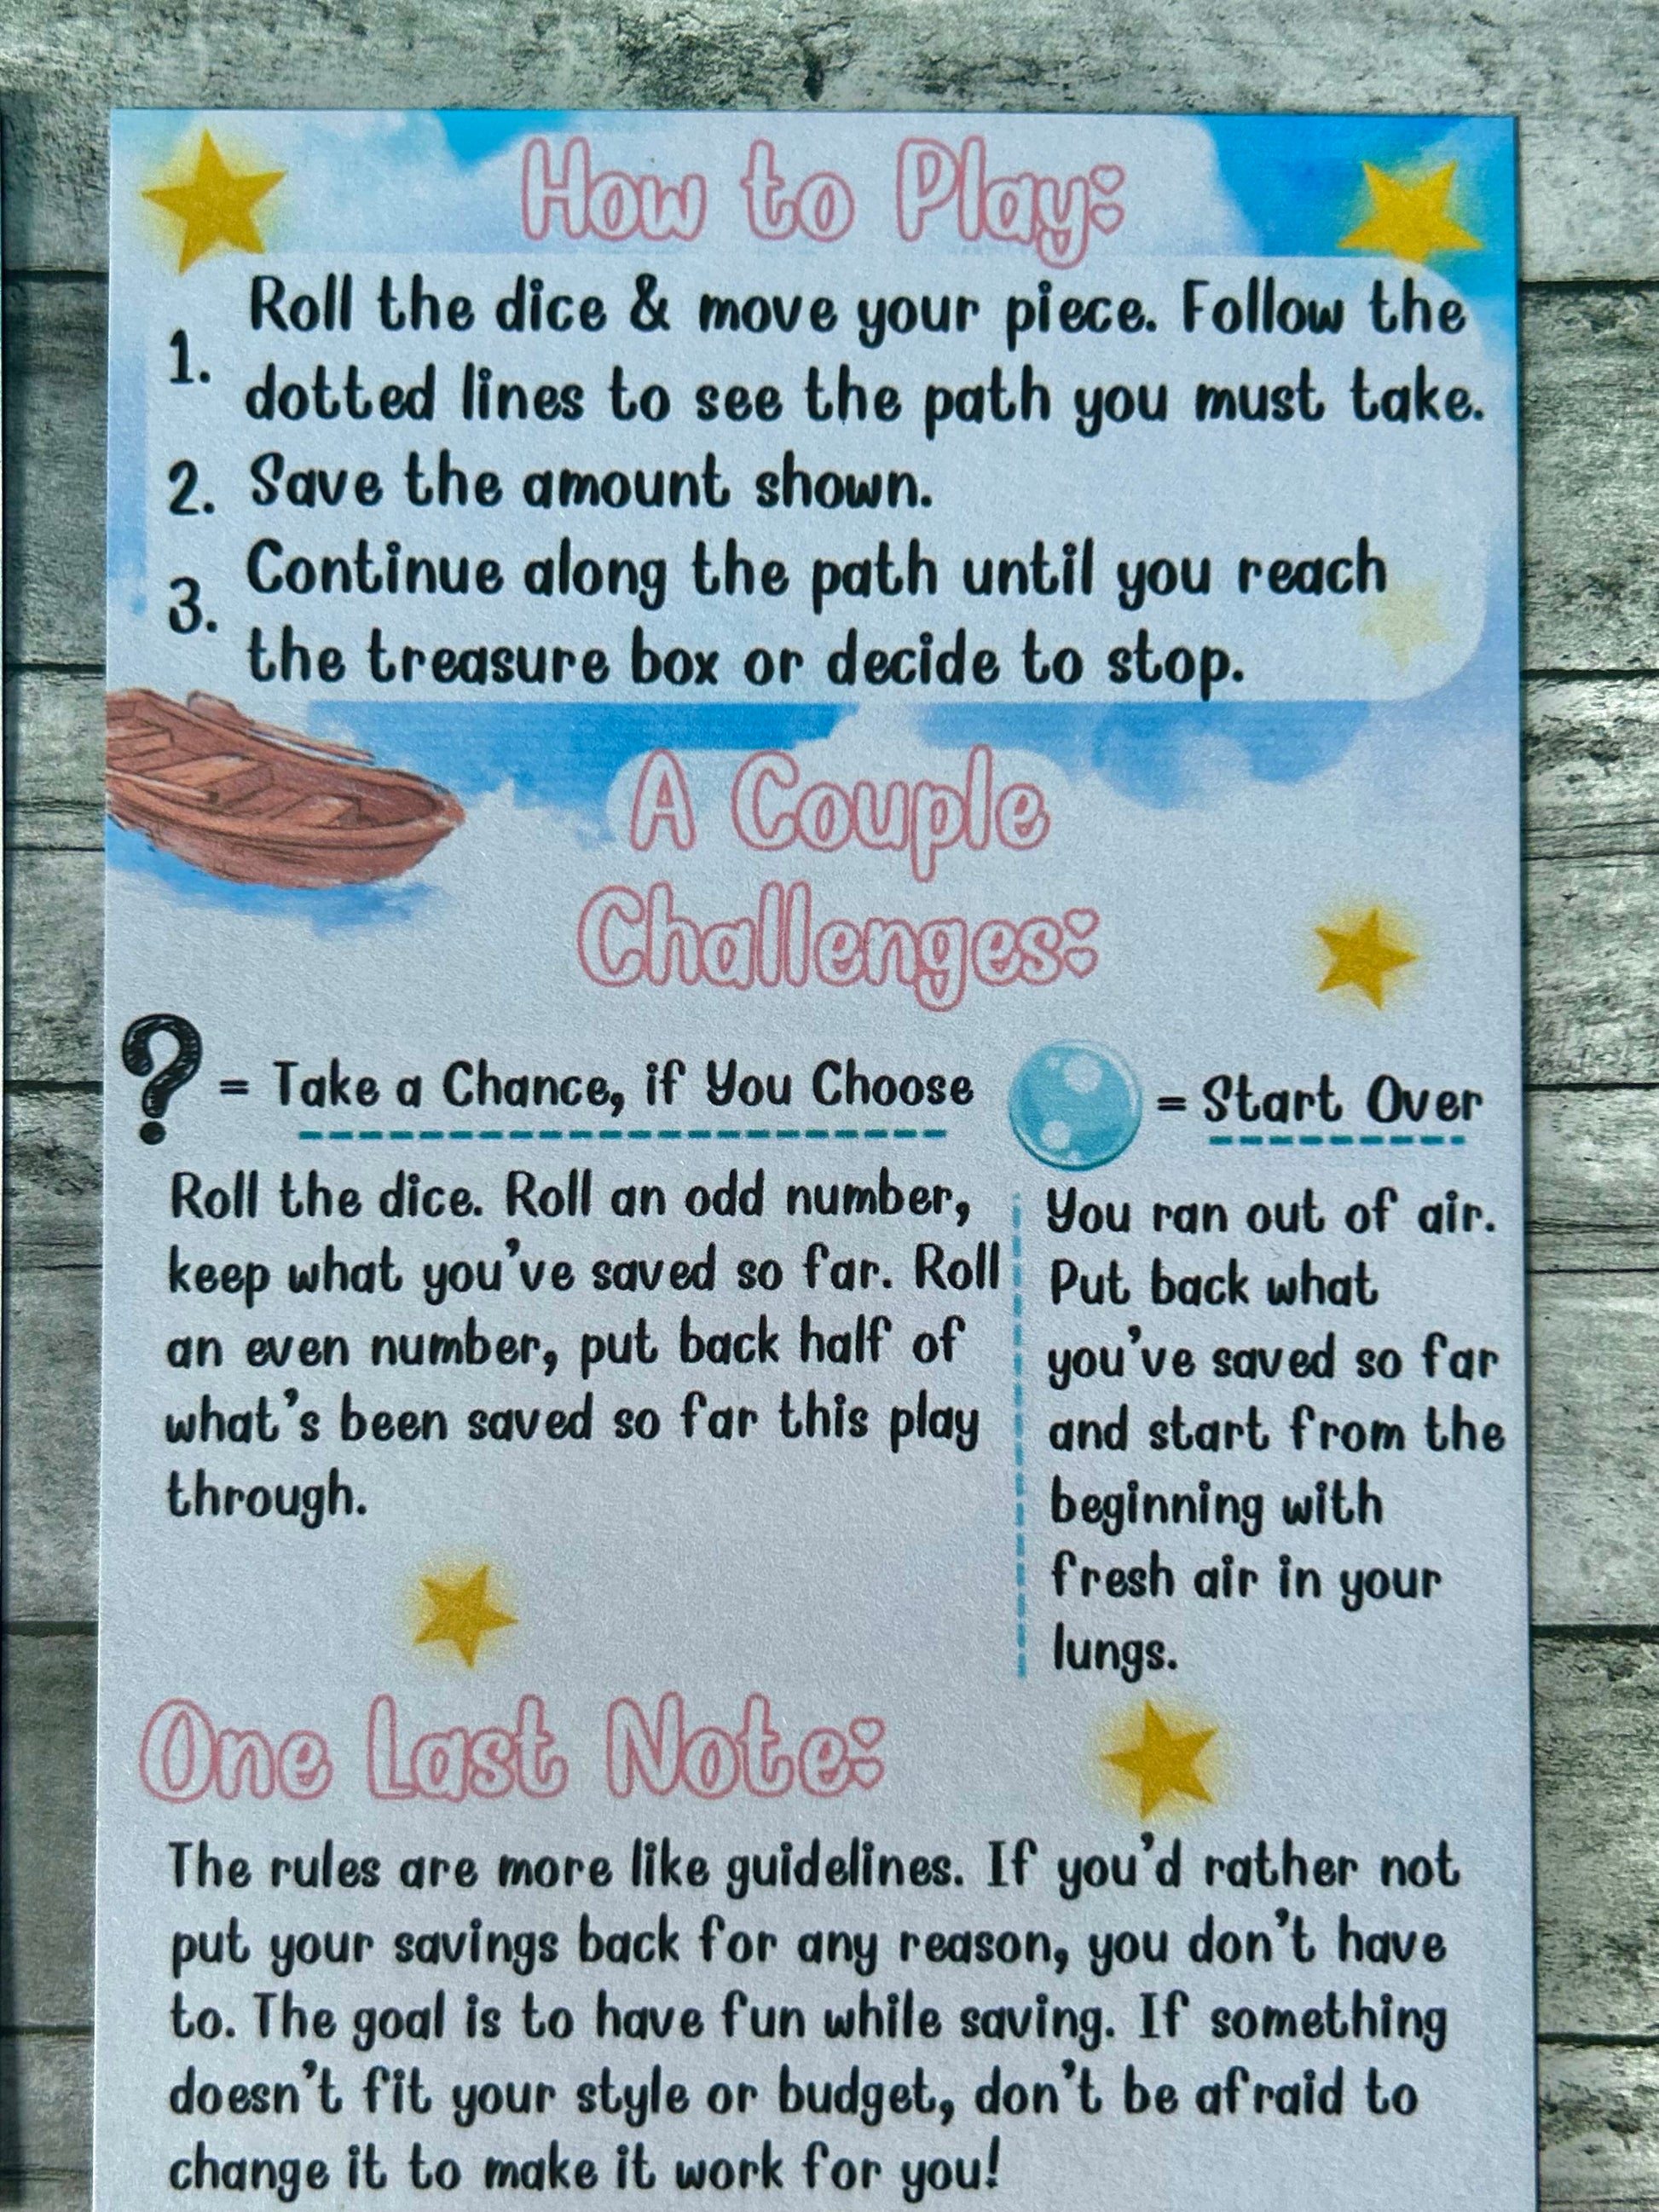 How to Play:
1. Roll the dice & move your piece. Follow the
dotted lines to see the path you must take.
2. Save the amount shown.
3. Continue along the path until you reach
the treasure box or decide to stop.
A Couple
Challenges:
? = Take a Chance, if You Choose
Roll the dice. Roll an odd number,
keep what you've saved so far. Roll
an even number, put back half of
what's been saved so far this play
through.
= Start Over
You ran out of air.
Put back what
you've saved so far
and start from the
beginning with
fresh air in your
lungs.
One Last Note:
The rules are more like guidelines. If you'd rather not
put your savings back for any reason, you don't have
to. The goal is to have fun while saving. If something
doesn't fit your style or budget, don't be afraid to
change it to make it work for you!